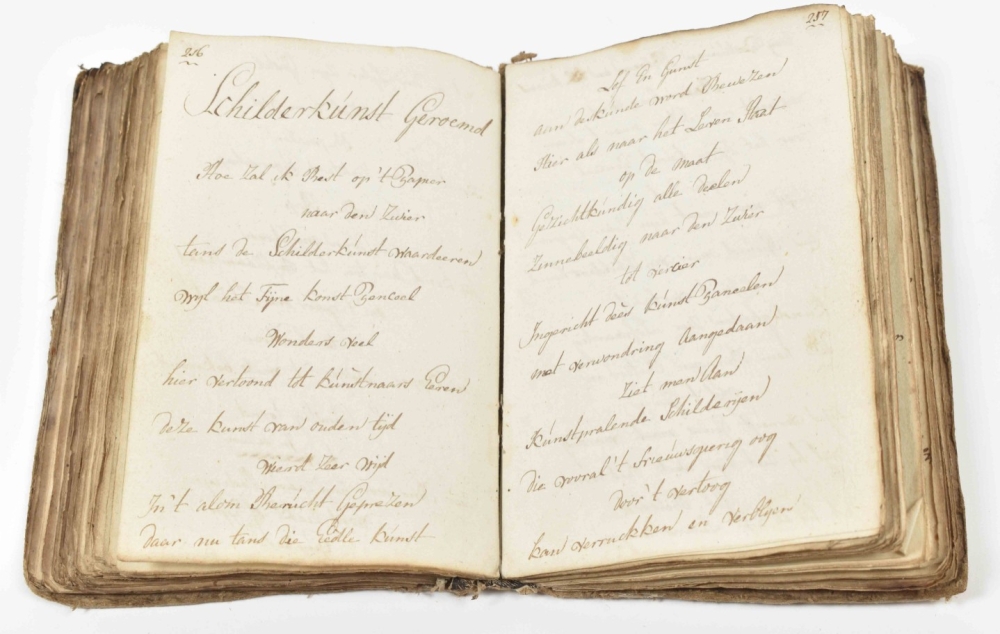 256
Schilderkúnst Geroemd
Hoe Zal ik Best op't Papier
naar den Zwier
tans de Schilderkúnst waardeeren
wijl het Fijne konst Penceel
Wonders veel
hier vertoond tot kúnstnaars Eeren
deze kunst van ouden tijd
Wierd zeer wijd
In't alom Berúcht Geprezen
daar nu tans die Eedle kúnst
257
Lof En Gunst
aan deskunde word Bewezen
Hier als naar het Leven Staat
op de maat
Gezichtkúndig alle deelen
Zinnebeeldig naar den Zwier
tot vercier
Ingericht deès kúnst Paneelen
met verwondring Aangedaan
Ziet men Aan
Kúnstpralende Schilderijen
die vooral 't nieuwsgierig oog
door't vertoog
kan verruckken en verblyen